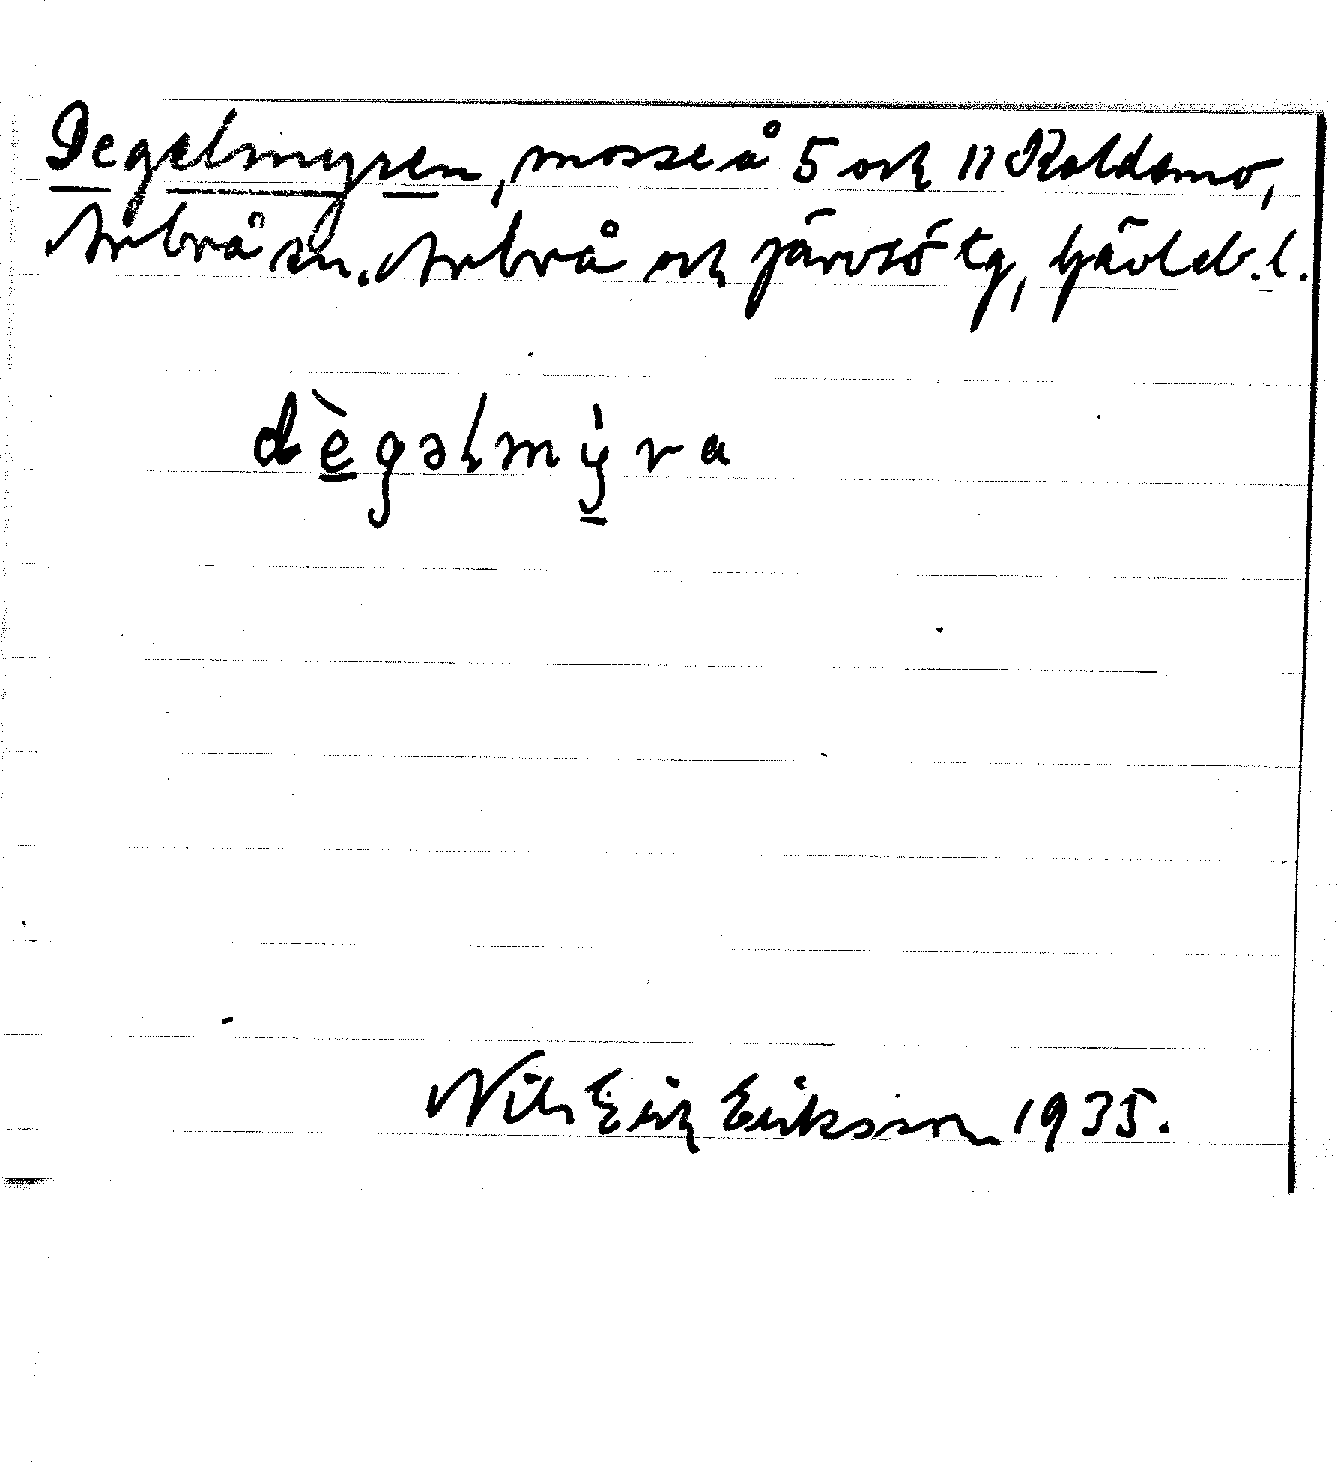 Degelmyren, mosse å 5 och 11 Koldemo,
Arbrå sn. Arbrå och Järvsö tg, Gävleb. l.
dègəlmýra
Nils Erik Eriksson 1935.